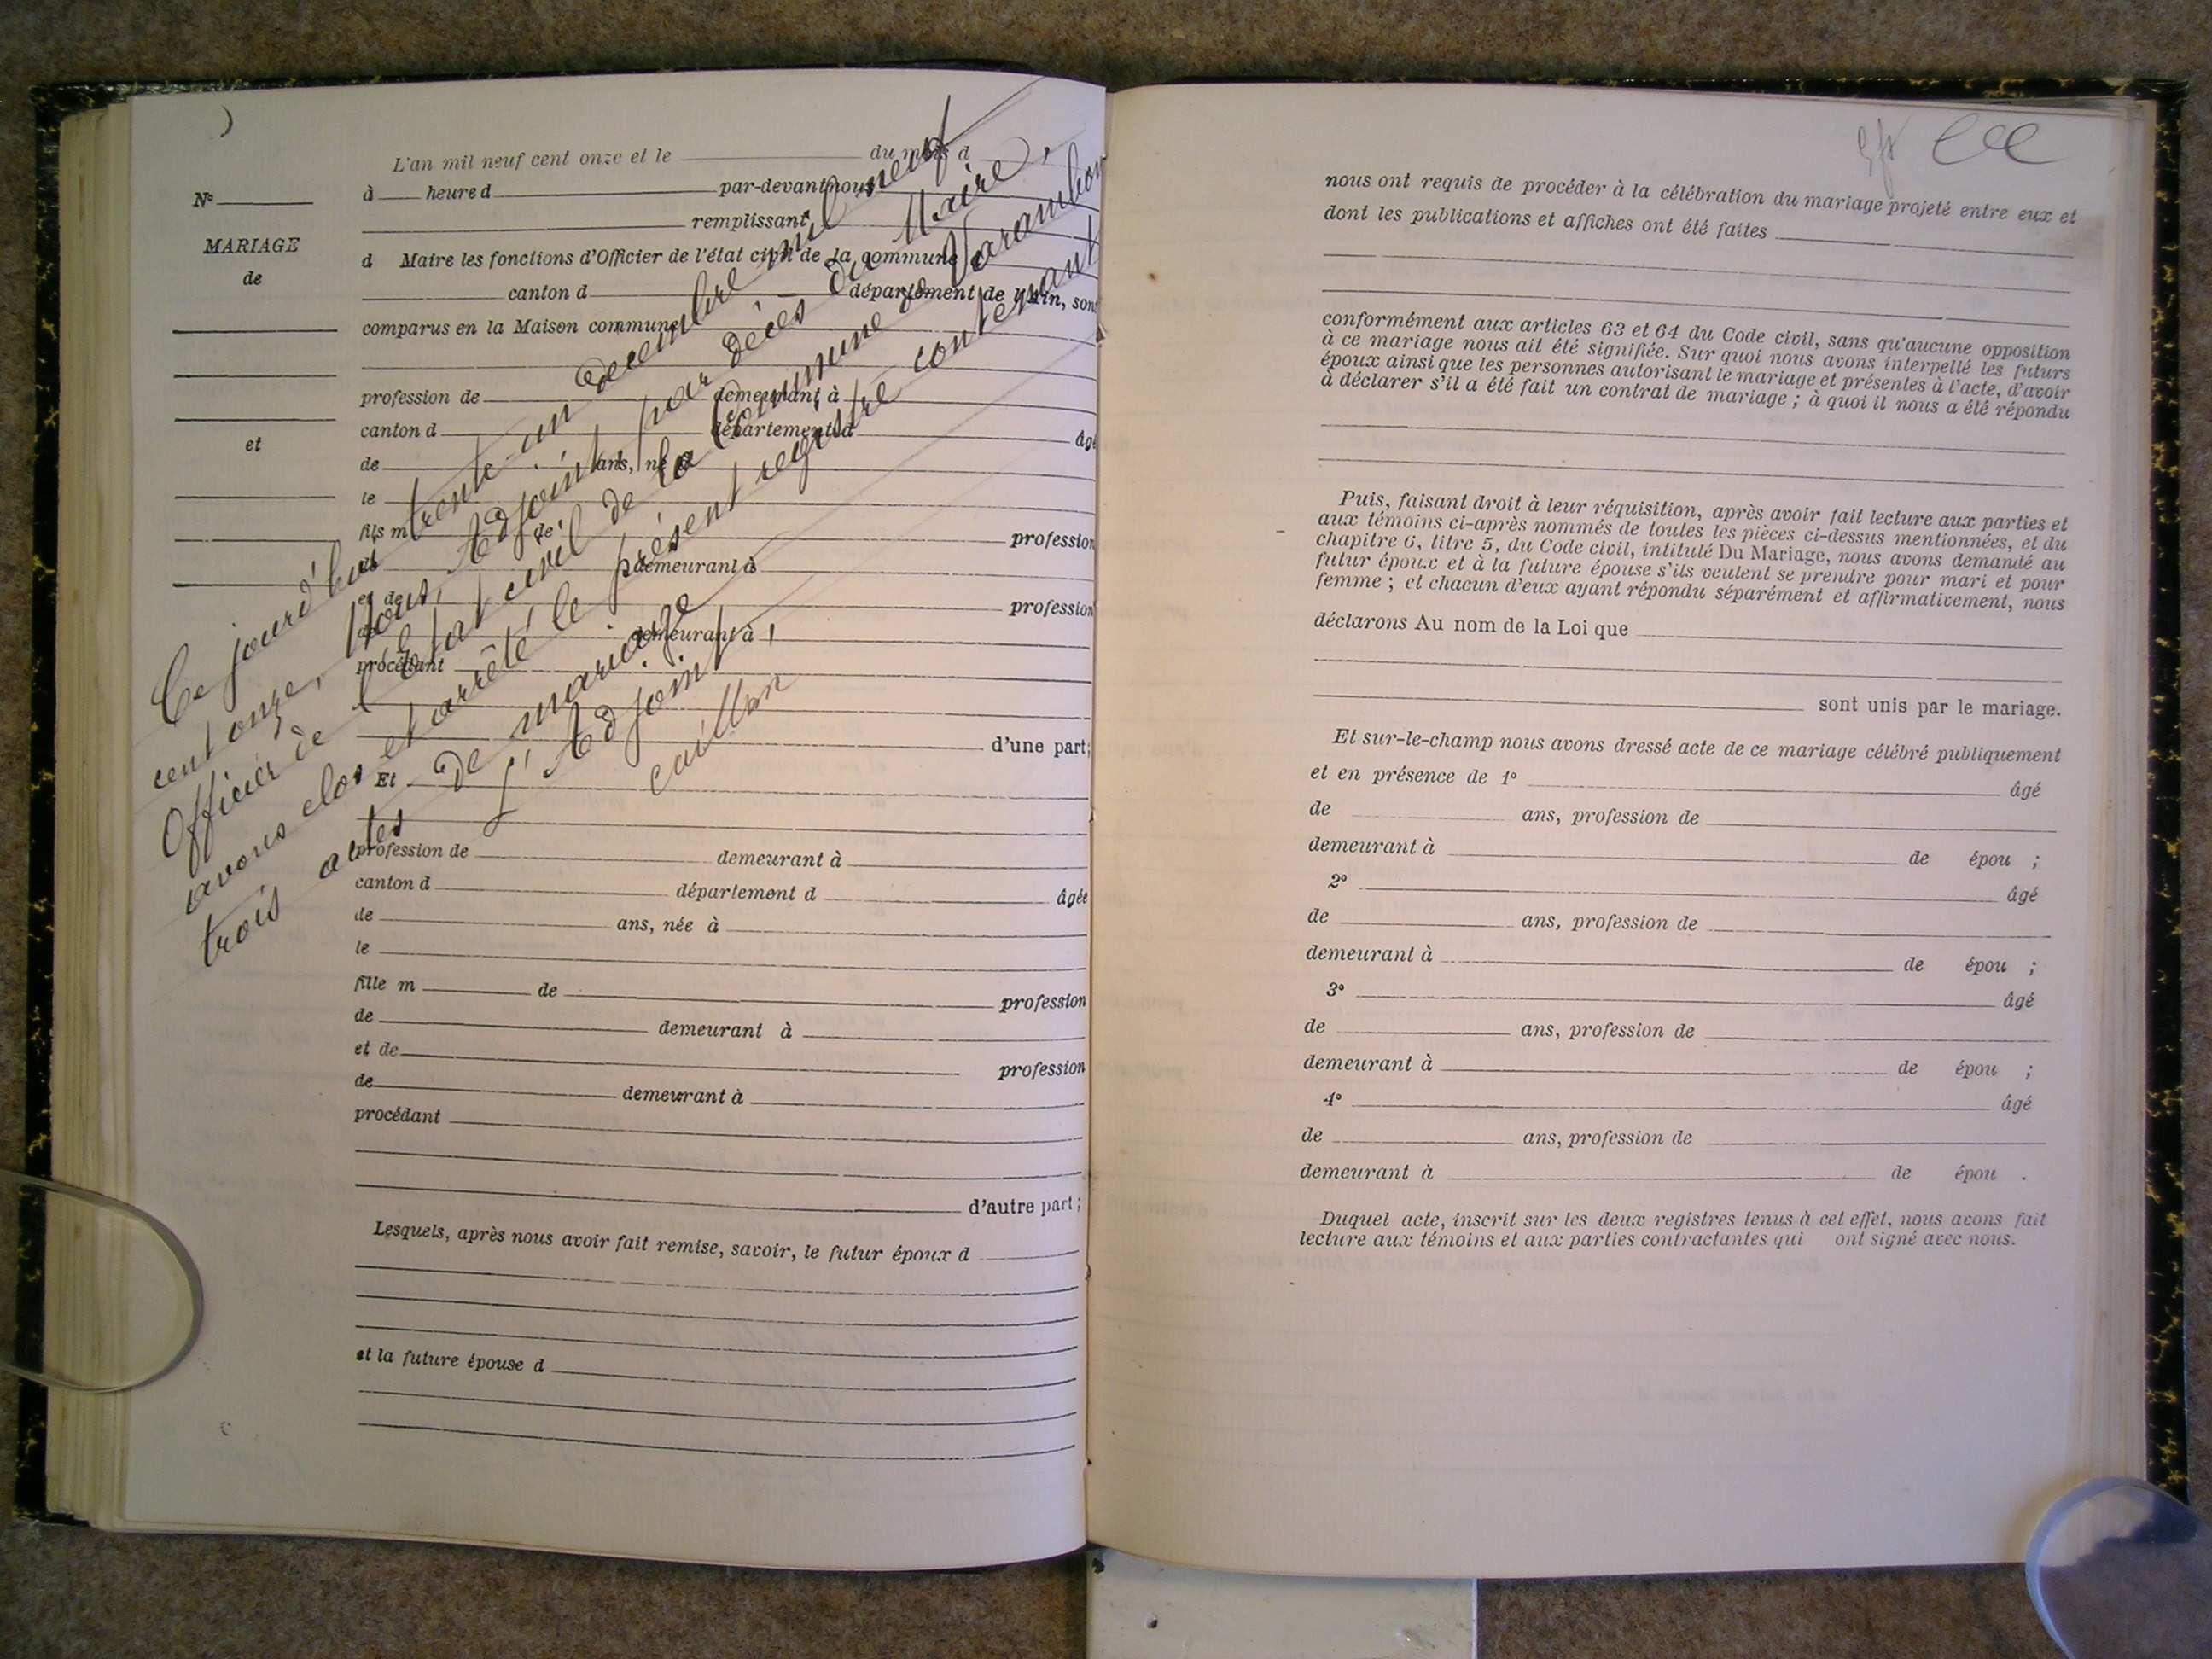 L'an mil neuf cent onze et le du mois d
à heure d par-devant nous
remplissant
d Maire les fonctions d'Officier de l'état civil de la commune d
canton d département de l'Ain, sont
comparus en la Maison commune
profession de demeurant à
canton d département d âgé
de ans, né à
le
fils m de profession
de demeurant à
et de profession
de demeurant à
procédant
d'une part;
Et
profession de demeurant à
canton d département d âgée
de ans, née à
le
fille m de profession
de demeurant à
et de profession
de demeurant à
procédant
d'autre part;
Lesquels, après nous avoir fait remise, savoir, le futur époux d
et la future épouse d
No
MARIAGE
de
et
Ce jourd'hui trente-un décembre mil neuf
cent onze, Nous, Adjoint, par décès du Maire,
Officier de l'état civil de la Commune de Varambon
avons clos et arrêté le présent registre contenant
trois actes de mariage
L'Adjoint,
nous ont requis de procéder à la célébration du mariage projeté entre eux et
dont les publications et affiches ont été faites
conformément aux articles 63 et 64 du Code civil, sans qu'aucune opposition
à ce mariage nous ait été signifiée. Sur quoi nous avons interpellé les futurs
époux ainsi que les personnes autorisant le mariage et présentes à l'acte, d'avoir
à déclarer s'il a été fait un contrat de mariage ; à quoi il nous a été répondu
Puis, faisant droit à leur réquisition, après avoir fait lecture aux parties et
aux témoins ci-après nommés de toutes les pièces ci-dessus mentionnées, et du
chapitre 6, titre 5, du Code civil, intitulé Du Mariage, nous avons demandé au
futur époux et à la future épouse s'ils veulent se prendre pour mari et pour
femme ; et chacun d'eux ayant répondu séparément et affirmativement, nous
déclarons Au nom de la Loi que
sont unis par le mariage.
Et sur-le-champ nous avons dressé acte de ce mariage célébré publiquement
et en présence de 1º âgé
de ans, profession de
demeurant à de épou ;
2º âgé
de ans, profession de
demeurant à de épou ;
3º âgé
de ans, profession de
demeurant à de épou ;
4º âgé
de ans, profession de
demeurant à de épou .
Duquel acte, inscrit sur les deux registres tenus à cet effet, nous avons fait
lecture aux témoins et aux parties contractantes qui ont signé avec nous.